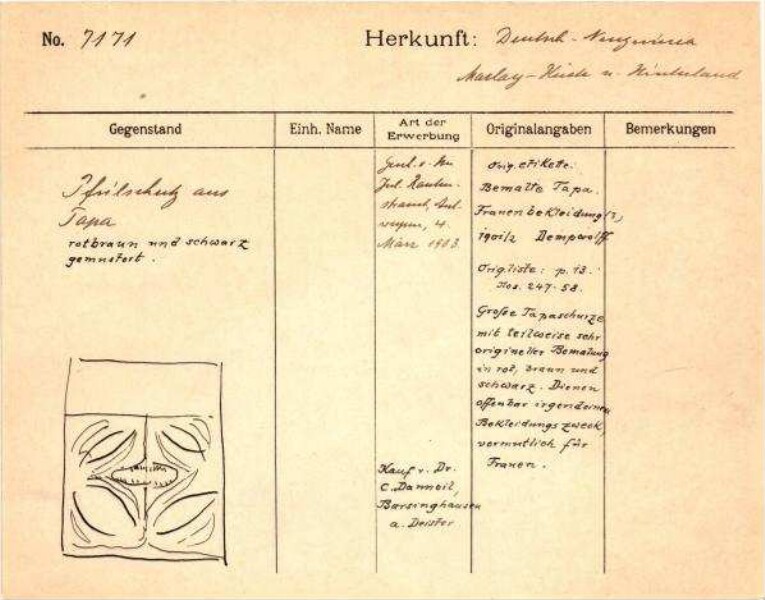 No. 7171
Herkunft: Deutsch-Neuguinea
Maclay-Küste u. Hinterland
Gegenstand
Einh. Name
Art der
Erwerbung
Originalangaben
Bemerkungen
aus
Tapa
rotbraun und schwarz
gemustert.
Jul. Rauten-
strauch, Ant-
werpen, 4.
März 1903
Kauf v. Dr.
C. Danneil,
Barsinghausen
a. Deister
Orig. etikete:
Bemalte Tapa.
Frauenbekleidung(?)
1901/2 Dempwolff
Orig. liste: p. 13.
Nos. 247-58.
Große Tapaschurze
mit teilweise sehr
origineller Bemalung
in rot, braun und
schwarz. Dienen
offenbar irgendeinem
Bekleidungszweck,
vermutlich für
Frauen.